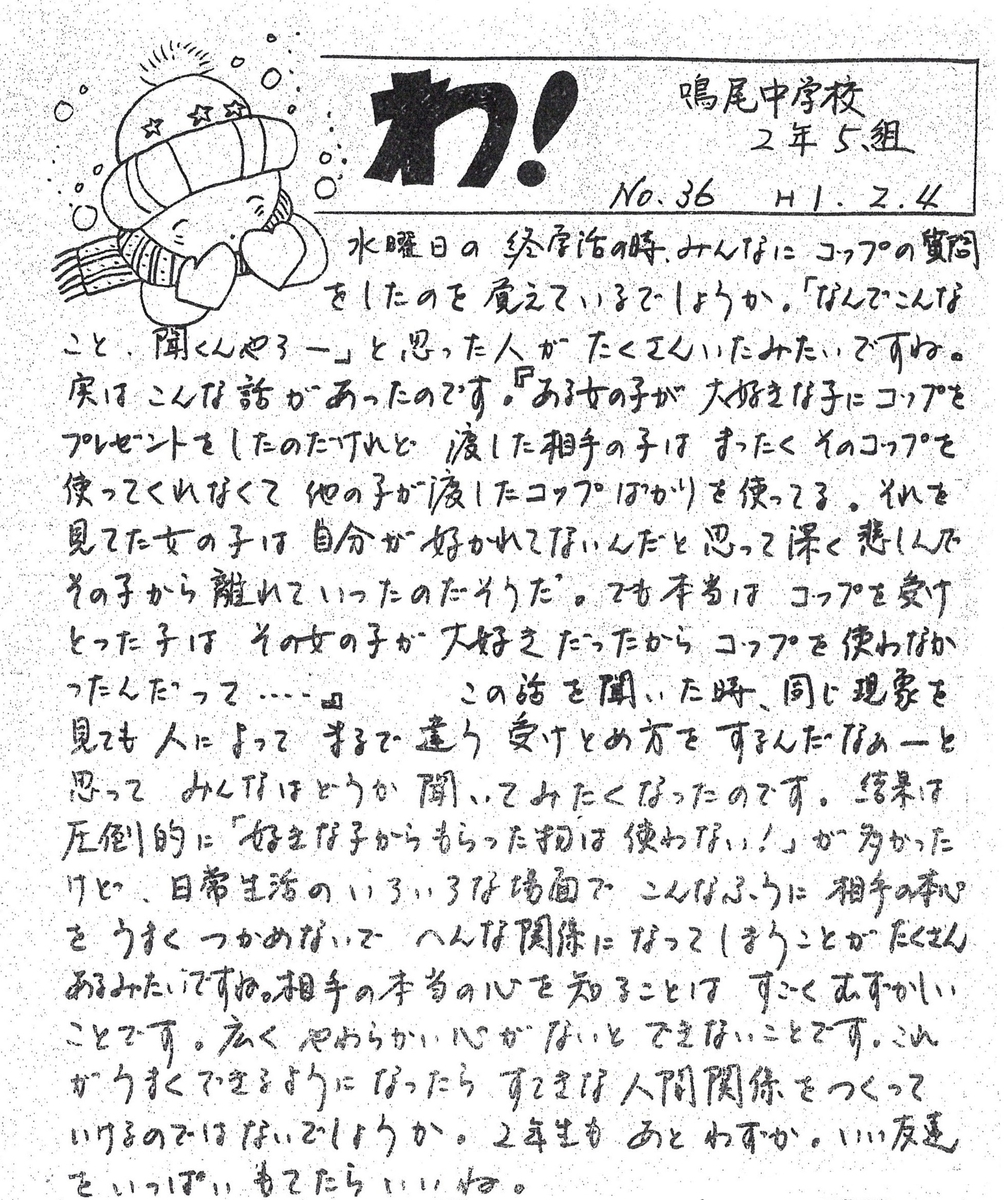 わ!
鳴尾中学校
2年5組
No.36 H1.2.4
水曜日の終学活の時、みんなに コップの質問
をしたのを覚えているでしょうか。「なんでこんな
こと、聞くんやろー」と思った人が たくさんいたみたいですね。
実は こんな話があったのです。『ある女の子が 大好きな子に コップを
プレゼントをしたのだけれど 渡した相手の子は まったく そのコップを
使ってくれなくて 他の子が渡したコップばかりを使ってる。それを
見てた女の子は 自分が好かれてないんだと思って深く悲しんで
その子から離れていったのだそうだ。でも本当は コップを受け
とった子は その女の子が 大好きだったから コップを使わなか
ったんだって‥‥』 この話を聞いた時、同じ現象を
見ても 人によって まるで違う 受けとめ方をするんだなぁーと
思って みんなはどうか 聞いてみたくなったのです。結果は
圧倒的に「好きな子からもらった物は使わない!」が多かった
けど、日常生活の いろいろな場面で こんなふうに 相手の本心
を うまく つかめないで へんな関係に なってしまうことが たくさん
あるみたいですね。相手の本当の心を知ることは すごく むずかしい
ことです。広く やわらかい心が ないと できないことです。これ
がうまくできるように なったら すてきな人間関係を つくって
いけるのではないでしょうか。2年生も あと わずか。いい友達
を いっぱい もてたら いいね。